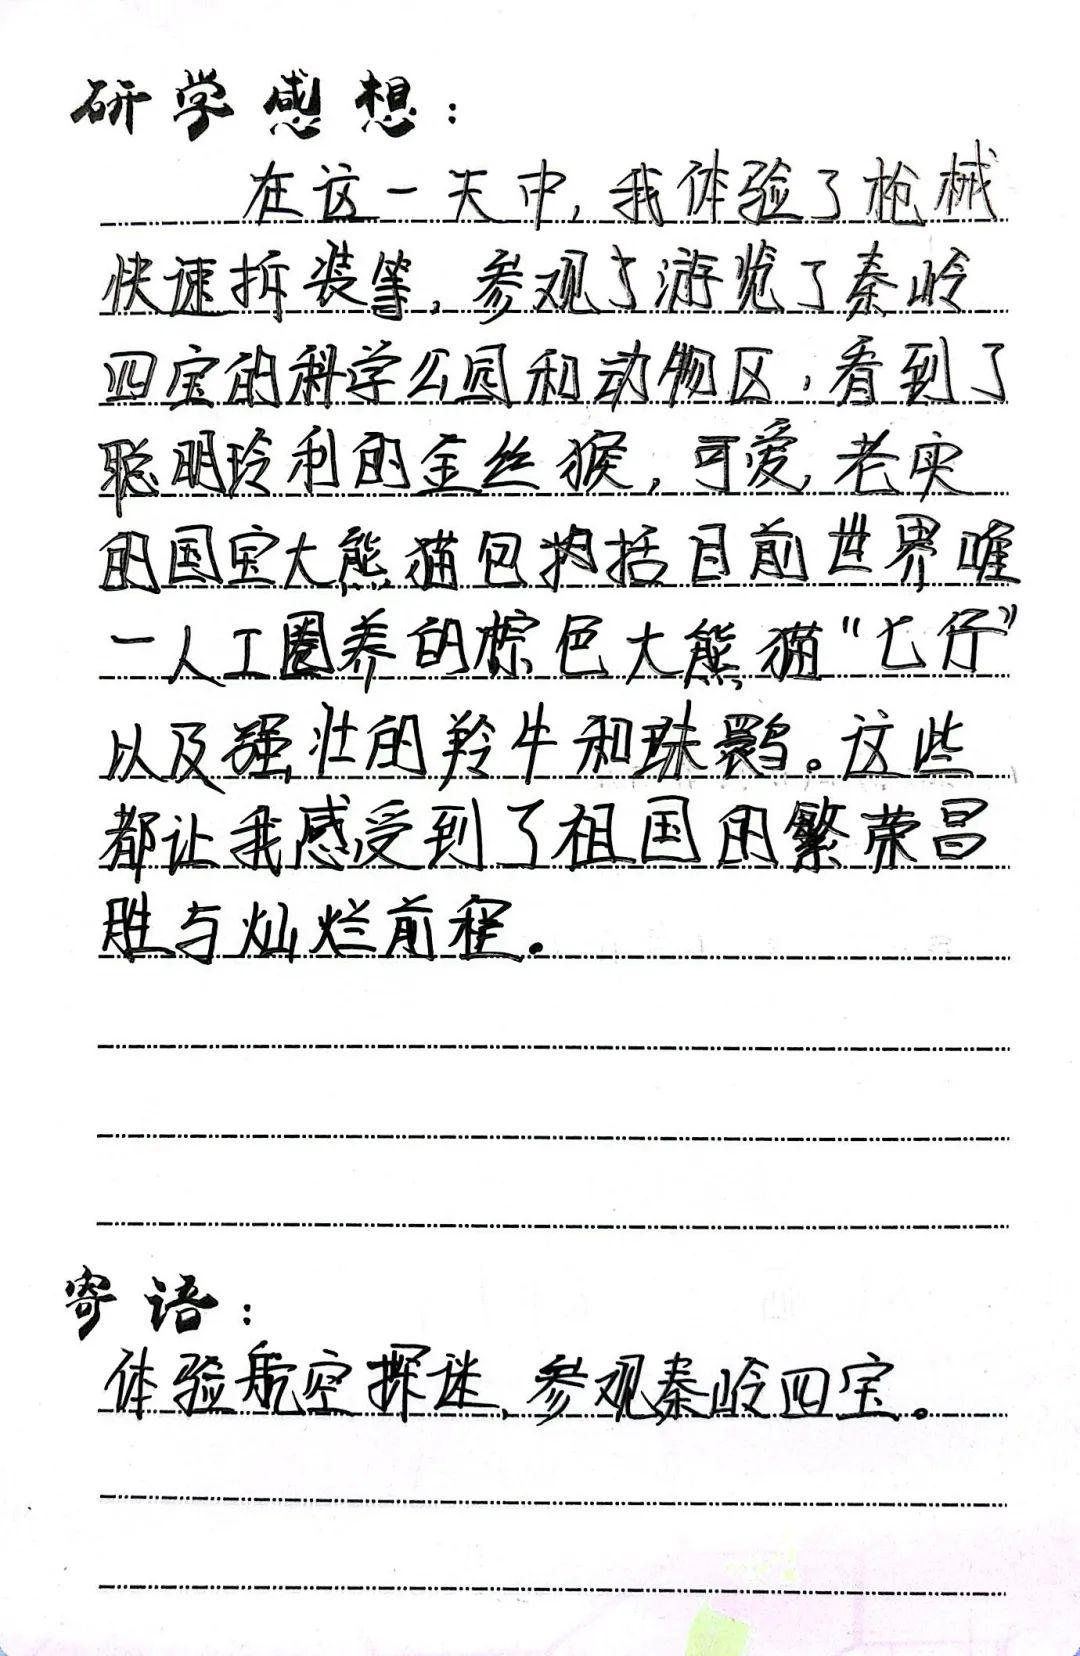 研学感想：
在这一天中,我体验了枪械
快速拆装等,参观了游览了秦岭
四宝的科学公园和动物区,看到了
聪明玲利的金丝猴,可爱,老实
的国宝大熊猫包括目前世界唯
一人工圈养的棕色大熊猫“七仔”
以及强壮的羚牛和珠鹮。这些
都让我感受到了祖国的繁荣昌
胜与灿烂前程.
寄语：
体验航空探谜,参观秦岭四宝。